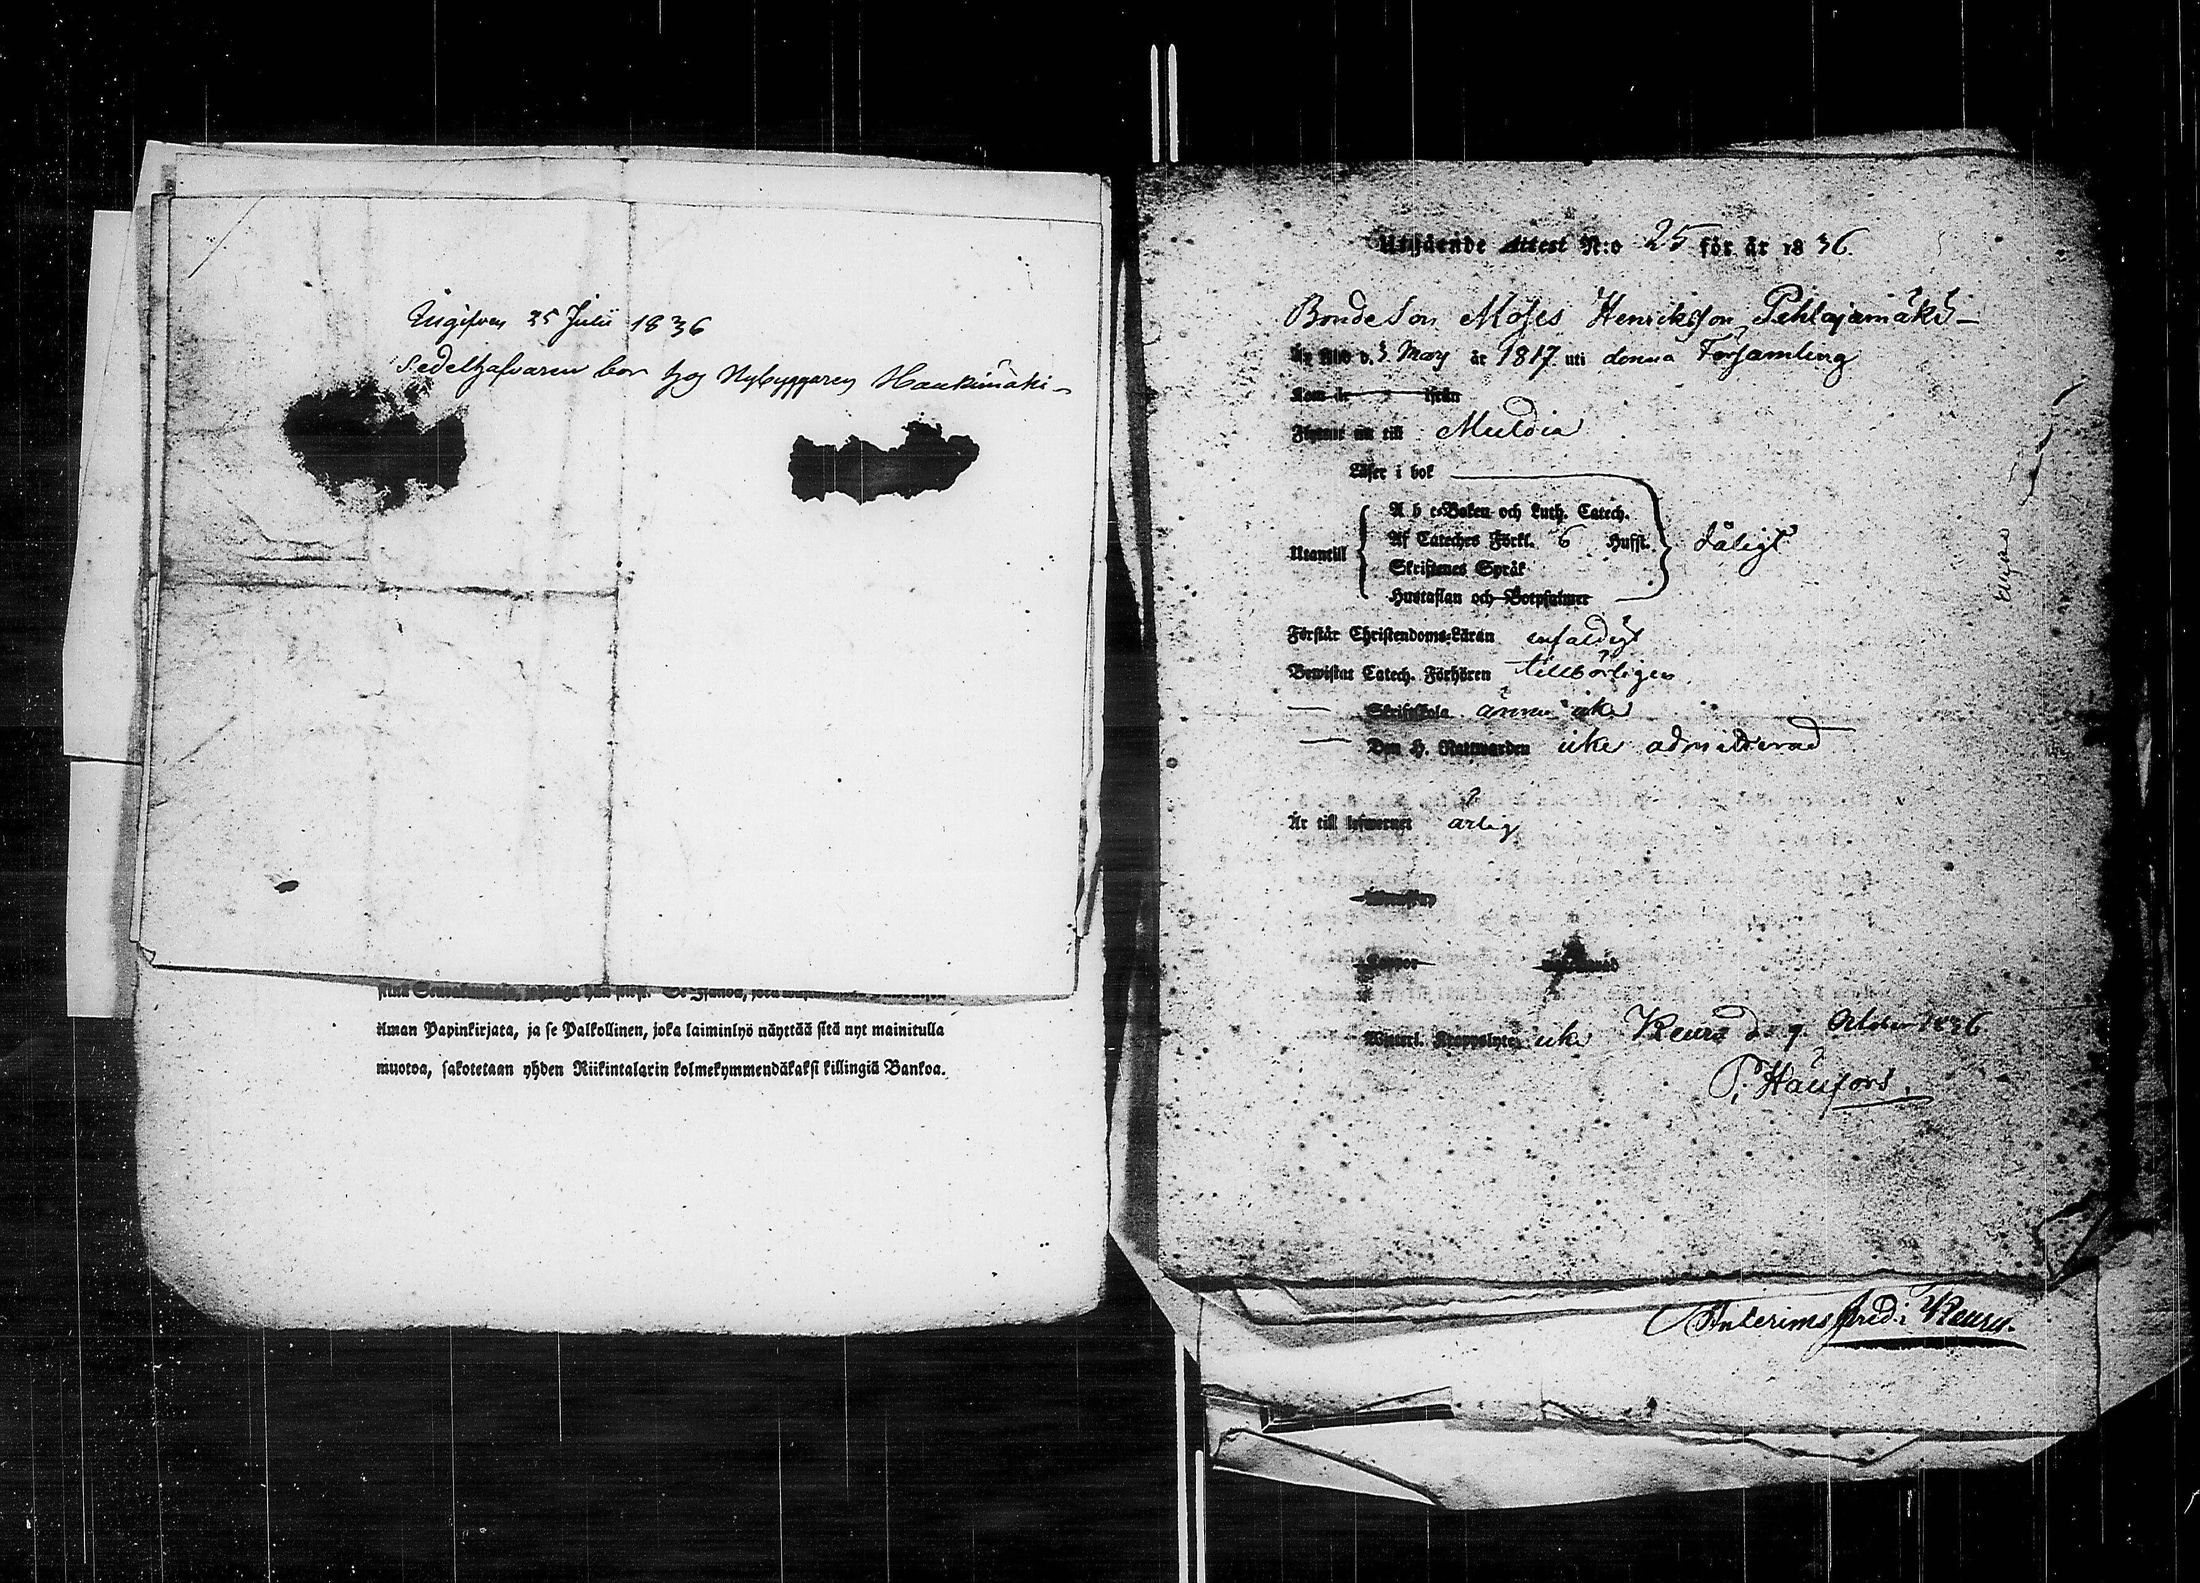 Ingifven 25 Julii 1836
Sedelhafvaren bor hos Nybyggaren Haukimäki
ilman Papinkirjata, ja se Palkollinen, joka laiminlyö näyttää sitä nyt mainitulla
muotoa, sakotetaan yhden Riikintalarin kolmekymmendäkaksi killingiä Bankoa.
Utgående Attest N:o 25 för år 1836.
Bondeson Moses Henricksson Pihlajamäki
Är född d. May år 1817 uti denna Församling
Kom år ifrån
Flyttat nu till Muldia
Läser i bok
A b c-Boken och Luth. Catech.
Utantill Af Cateches Förkl. 6 Hufst. dåligt
Skriftenes Språk
Hustaflan och Botpsalmer
Förstår Christendoms-Läran enfaldigt
Bewistat Catech. Förhören tillbörligen
Skriftskola ännu icke
Den H. Nattwarden icke admitterad
Är till lefwernet ärlig
icke Keuru d. 9 October 1836
P. Häggfors.
Interims Pred: i Keuru.